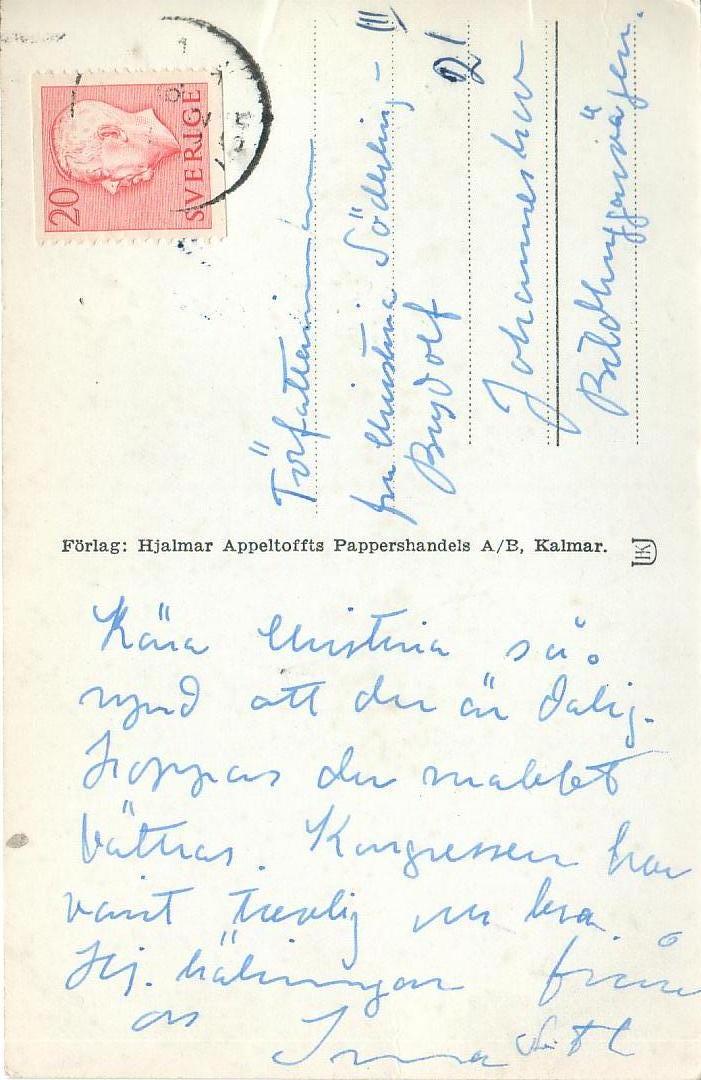 20
SVERIGE
Författarinnan
fru Christina Söderling-
Brydolf
Johanneshov
Bildhuggarvägen
Förlag: Hjalmar Appeltoffts Pappershandels A/B, Kalmar.
Kära Christina så
synd att du är dålig.
Hoppas du snabbt
bättras. Kongressen har
varit trevlig och bra.
Hj. hälsningar från
oss